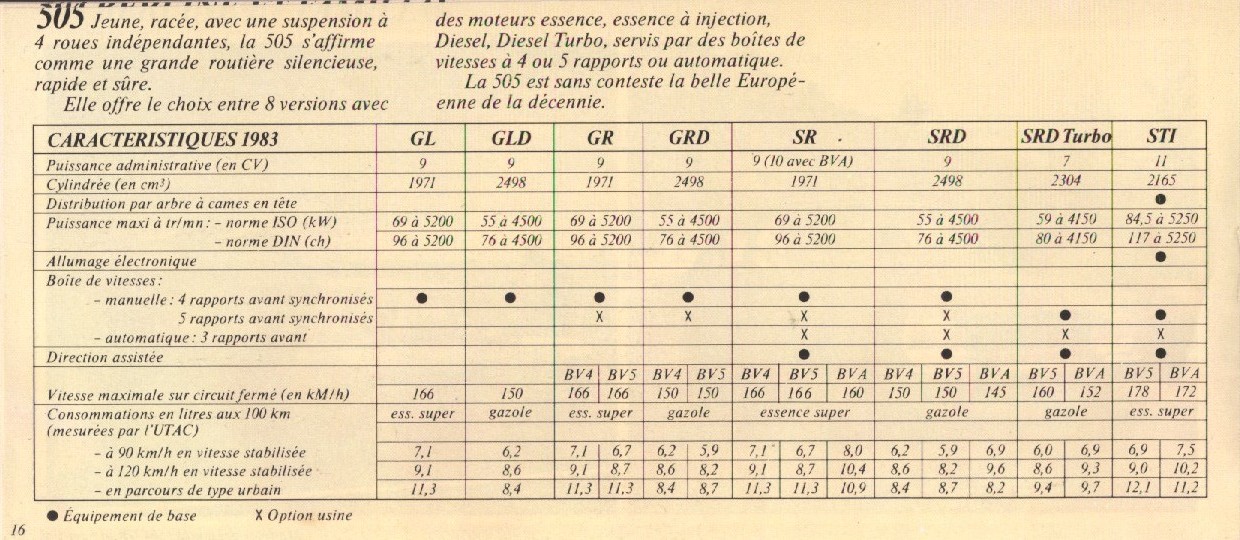 505 Jeune, racée, avec une suspension à
4 roues indépendantes, la 505 s'affirme
comme une grande routière silencieuse,
rapide et sûre.
Elle offre le choix entre 8 versions avec
des moteurs essence, essence à injection,
Diesel, Diesel Turbo, servis par des boîtes de
vitesses à 4 ou 5 rapports ou automatique.
La 505 est sans conteste la belle Europé-
enne de la décennie.
CARACTERISTIQUES 1983 GL GLD GR GRD SR SRD SRD Turbo STI
Puissance administrative (en CV) 9 9 9 9 9 (10 avec BVA) 9 7 11
Cylindrée (en cm³) 1971 2498 1971 2498 1971 2498 2304 2165
Distribution par arbre à cames en tête ●
Puissance maxi à tr/mn : – norme ISO (kW) 69 à 5200 55 à 4500 69 à 5200 55 à 4500 69 à 5200 55 à 4500 59 à 4150 84,5 à 5250
– norme DIN (ch) 96 à 5200 76 à 4500 96 à 5200 76 à 4500 96 à 5200 76 à 4500 80 à 4150 117 à 5250
Allumage électronique ●
Boîte de vitesses :
– manuelle : 4 rapports avant synchronisés ● ● ● ● ● ●
5 rapports avant synchronisés X X X X ● ●
– automatique : 3 rapports avant X X X X
Direction assistée ● ● ● ●
BV4 BV5 BV4 BV5 BV4 BV5 BVA BV4 BV5 BVA BV5 BVA BV5 BVA
Vitesse maximale sur circuit fermé (en kM/h) 166 150 166 166 150 150 166 166 160 150 150 145 160 152 178 172
Consommations en litres aux 100 km ess. super gazole ess. super gazole essence super gazole gazole ess. super
(mesurées par l'UTAC)
– à 90 km/h en vitesse stabilisée 7,1 6,2 7,1 6,7 6,2 5,9 7,1 6,7 8,0 6,2 5,9 6,9 6,0 6,9 6,9 7,5
– à 120 km/h en vitesse stabilisée 9,1 8,6 9,1 8,7 8,6 8,2 9,1 8,7 10,4 8,6 8,2 9,6 8,6 9,3 9,0 10,2
– en parcours de type urbain 11,3 8,4 11,3 11,3 8,4 8,7 11,3 11,3 10,9 8,4 8,7 8,2 9,4 9,7 12,1 11,2
● Équipement de base X Option usine
16